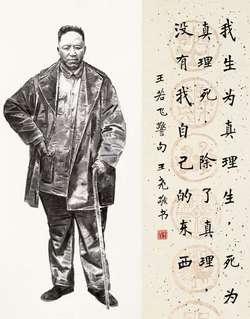 我生为真理生，死为
真理死，除了真理，
没有我自己的东西
王若飞警句 王 书